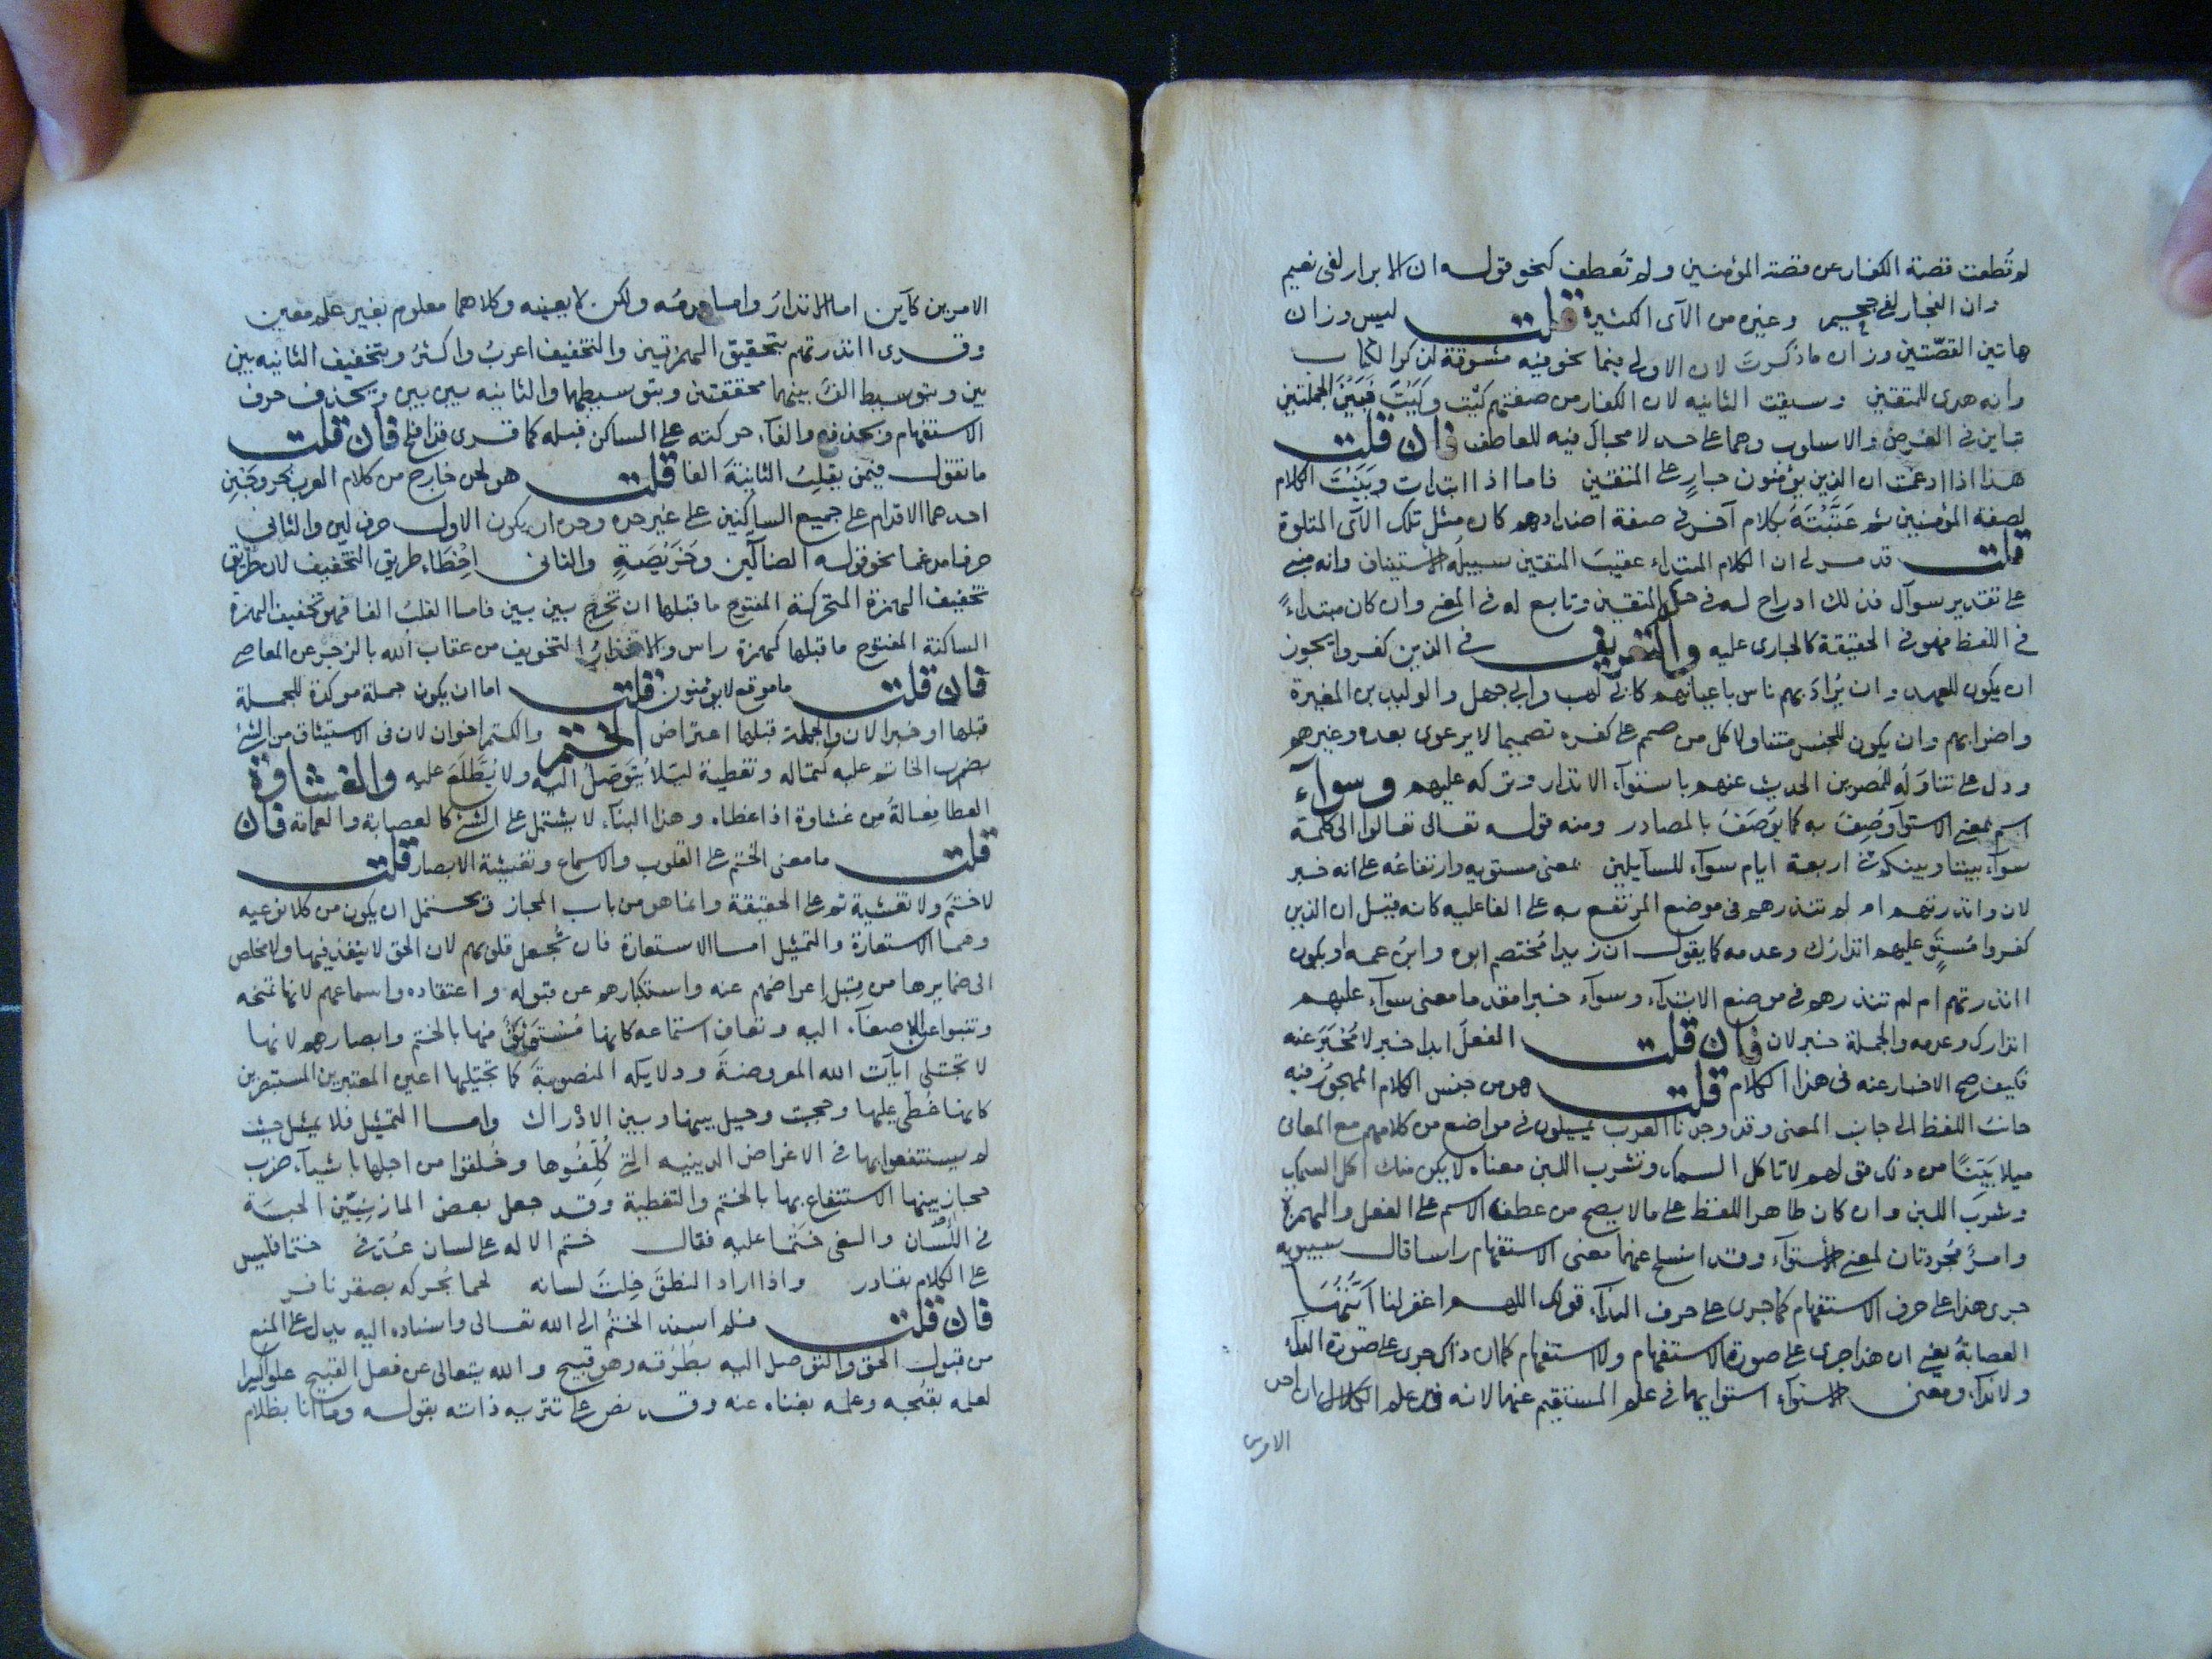 لم قُطعت قصة الكفار عن قصة المؤمنين ولم تُعطف كنحو قوله ان الابرار لفى نعيم
وان الفجار لفى جحيم وغيره من الآى الكثيرة قلت ليس وزان
هاتين القصّتين وزان ما ذكرتَ لان الاولى فيما نحن فيه مسوقة لذكر الكتاب
وانه هدى للمتقين وسيقت الثانيه لان الكفار من صفتهم كَيْت وكَيْتَ فبَيْنَ الجملتين
تباين فى الغرض والاسلوب وهما على حد لا مجال فيه للعاطف فان قلت
هذا اذا ادعمت ان الذين يؤمنون جارٍ على المتقين فاما اذا ابتدات وبَنَيْتَ الكلام
لصفة المؤمنين ثم عَقَّبْتَهُ بكلام آخر فى صفة اضدادهم كان مثل تلك الآى المتلوة
قلت قد مر لى ان الكلام المبتداء عقيبَ المتقين سبيله الاستيناف وانه مبنى
على تقدير سوآل فذلك ادراج له فى حكم المتقين وتابع له فى المعنى وان كان مبتداءً
فى اللفظ فهو فى الحقيقة كالجارى عليه والتعريف فى الذين كفروا يجوز
ان يكون للعهد وان يُرادَ بهم ناس باعيانهم كابى لهب وابى جهل والوليد بن المغيرة
واضرابهم وان يكون للجنس متناولا كل من صمم على كفره تصميما لا يرعوى بعده وغيرهم
ودل على تناوله للمُصرين الحديث عنهم باستوآء الانذار وتركه عليهم وسوآء
اسم بمعنى الاستوآ وُصِفَ به كما يُوصَفُ بالمصادر ومنه قوله تعالى تعالوا الى كلمة
سوآء بيننا وبينكم فى اربعة ايام سوآء للسآيلين بمعنى مستويه وارتفاعُه على انه خبر
لان وانذرتهم ام لم تنذرهم فى موضع المرتفع به على الفاعليه كانه قيل ان الذين
كفروا مُستوٍ عليهم انذارُك وعدمه كما يقول ان زيدا مُختصم ابوه وابنُ عمه او يكون
اانذرتهم ام لم تنذرهم فى موضع الابتدآء وسوآء خبرا مقدما معنى سوآء عليهم
انذارك وعدمه والجملة خبر لان فان قلت الفعلُ ابدا خبر لا مُخْبَرَ عنه
فكيف صح الاخبار عنه فى هذا الكلام قلت هو من جنس الكلام المهجور فيه
جانب اللفظ الى جانب المعنى وقد وجدنا العرب يميلون فى مواضع من كلامهم مع المعانى
ميلا بَيّنًا من ذلك قولهم لا تاكل السمك وتشرب اللبن معناه لا يكن منك اكل السمك
وشرب اللبن وان كان ظاهر اللفظ على ما لا يصح من عطف الاسم على الفعل والهمزة
وامْ مُجردتان لمعنى الاستوآء وقد انسلخ عنهما معنى الاستفهام راسا قال سيبويه
جرى هذا على حرف الاستفهام كما جرى على حرف الندآء قولك اللهم اغفر لنا ايّتُها
العصابة يعنى ان هذا جرى على صورة الاستفهام ولا استفهام كما ان ذلك جرى على صورة الندآء
ولا ندآء ومعنى الاستوآء استوايهما فى علم المستفهم عنهما لانه قد علم ان احد
الامرين
الامرين كآين اما الانذارُ واما عدمُه ولكن لا بعينه وكلاهما معلوم بغير علم معين
وقرى اانذرتهم بتحقيق الهمزتين والتخفيف اعربُ واكثرُ وبتخفيف الثانيه بين
بين وبتوسيط الف بينهما محققتين وبتوسيطها والثانيه بين بين وبحذف حرف
الاستفهام وبحذفه والقآء حركته على الساكن قبله كما قرى قد افلح فان قلت
ما تقول فيمن يقلِبُ الثانيةَ الفا قلت هو لحن خارج من كلام العرب خروجَيْنِ
احدهما الاقدام على جميع الساكنين على غير حده وحده ان يكون الاول حرف لين والثانى
حرفا مدغما نحو قوله الضآلّين وخُوَيْصَةٍ والثانى اِخْطَاء طريق التخفيف لان طريق
تخفيف الهمزة المتحركة المفتوح ما قبلها ان تخرج بين بين فاما القلبُ الفا فهو تخفيف الهمزة
الساكنة المفتوح ما قبلها كهمزة راس والانذارُ التخويف من عقاب الله بالزجر عن المعاصى
فان قلت ما موقع لا يؤمنون قلت اما ان يكون جملة موكدة للجملة
قبلها او خبرا لان والجملة قبلها اعتراض الختم والكتم اخوان لان فى الاستيثاق من الشئ
بضرب الخاتم عليه كتما له وتغطية ليلا يُتَوصَّلُ اليه ولا يُطَّلَعَ عليه والغشاوة
الغطا فِعالةُ من غشاوة اذا غطاه وهذا البنآء لا يشتمل على الشئ كالعصابة والعمامه فان
قلت ما معنى الختم على القلوب والاسماع وتغشية الابصار قلت
لا ختمَ ولا تغشيةَ ثم على الحقيقة وانما هو من باب المجاز ويحتمل ان يكون من كلا نوعيه
وهما الاستعارة والتمثيل اما الاستعارة فان تُجعل قلوبهم لان الحق لا ينفذ فيها ولا يخلص
الى ضمايرها من قِبَلِ اعراضهم عنه واستكبارهم عن قبوله واعتقاده واسماعهم لانها تمجه
وتنبوا عن الاصغآء اليه وتعاف استماعه كانها مُسْتَوْثَقٌ منها بالختم وابصارهم لانها
لا تجتلى آيات الله المعروضةَ ودلايله المنصوبةَ كما تجتليها اعين المعتبرين المستبصرين
كانما غُطى عليها وحجبت وحيل بينها وبين الادْراك واما التمثيل فلا يمثل حيث
لم يستنفعوا بها فى الاغراض الدينيه التى كُلِّفُوها وخُلقوا من اجلها باشيآء ضرب
حجاز بينها الاستنفاع بها بالختم والتغطية وقد جعل بعض المازنِيّين الحبسَة
فى اللِّسَان والعى خَتْما عليه فقال ختم الاله على لسان عُذَافر ختما فليس
على الكلام بقادر واذا اراد النطقَ خِلتَ لسانه لحما يُحركه بصقر نافر
فان قلت فلم اسند الختمُ الى الله تعالى واسناده اليه يدل على المنع
من قبول الحق والتوصل اليه بطُرُقه وهو قبيح والله يتعالى عن فعل القبيح علوا كبيرا
لعلمه بقبحه وعلمه بغناه عنه وقد نص على تنزيه ذاته بقوله وما انا بظلام